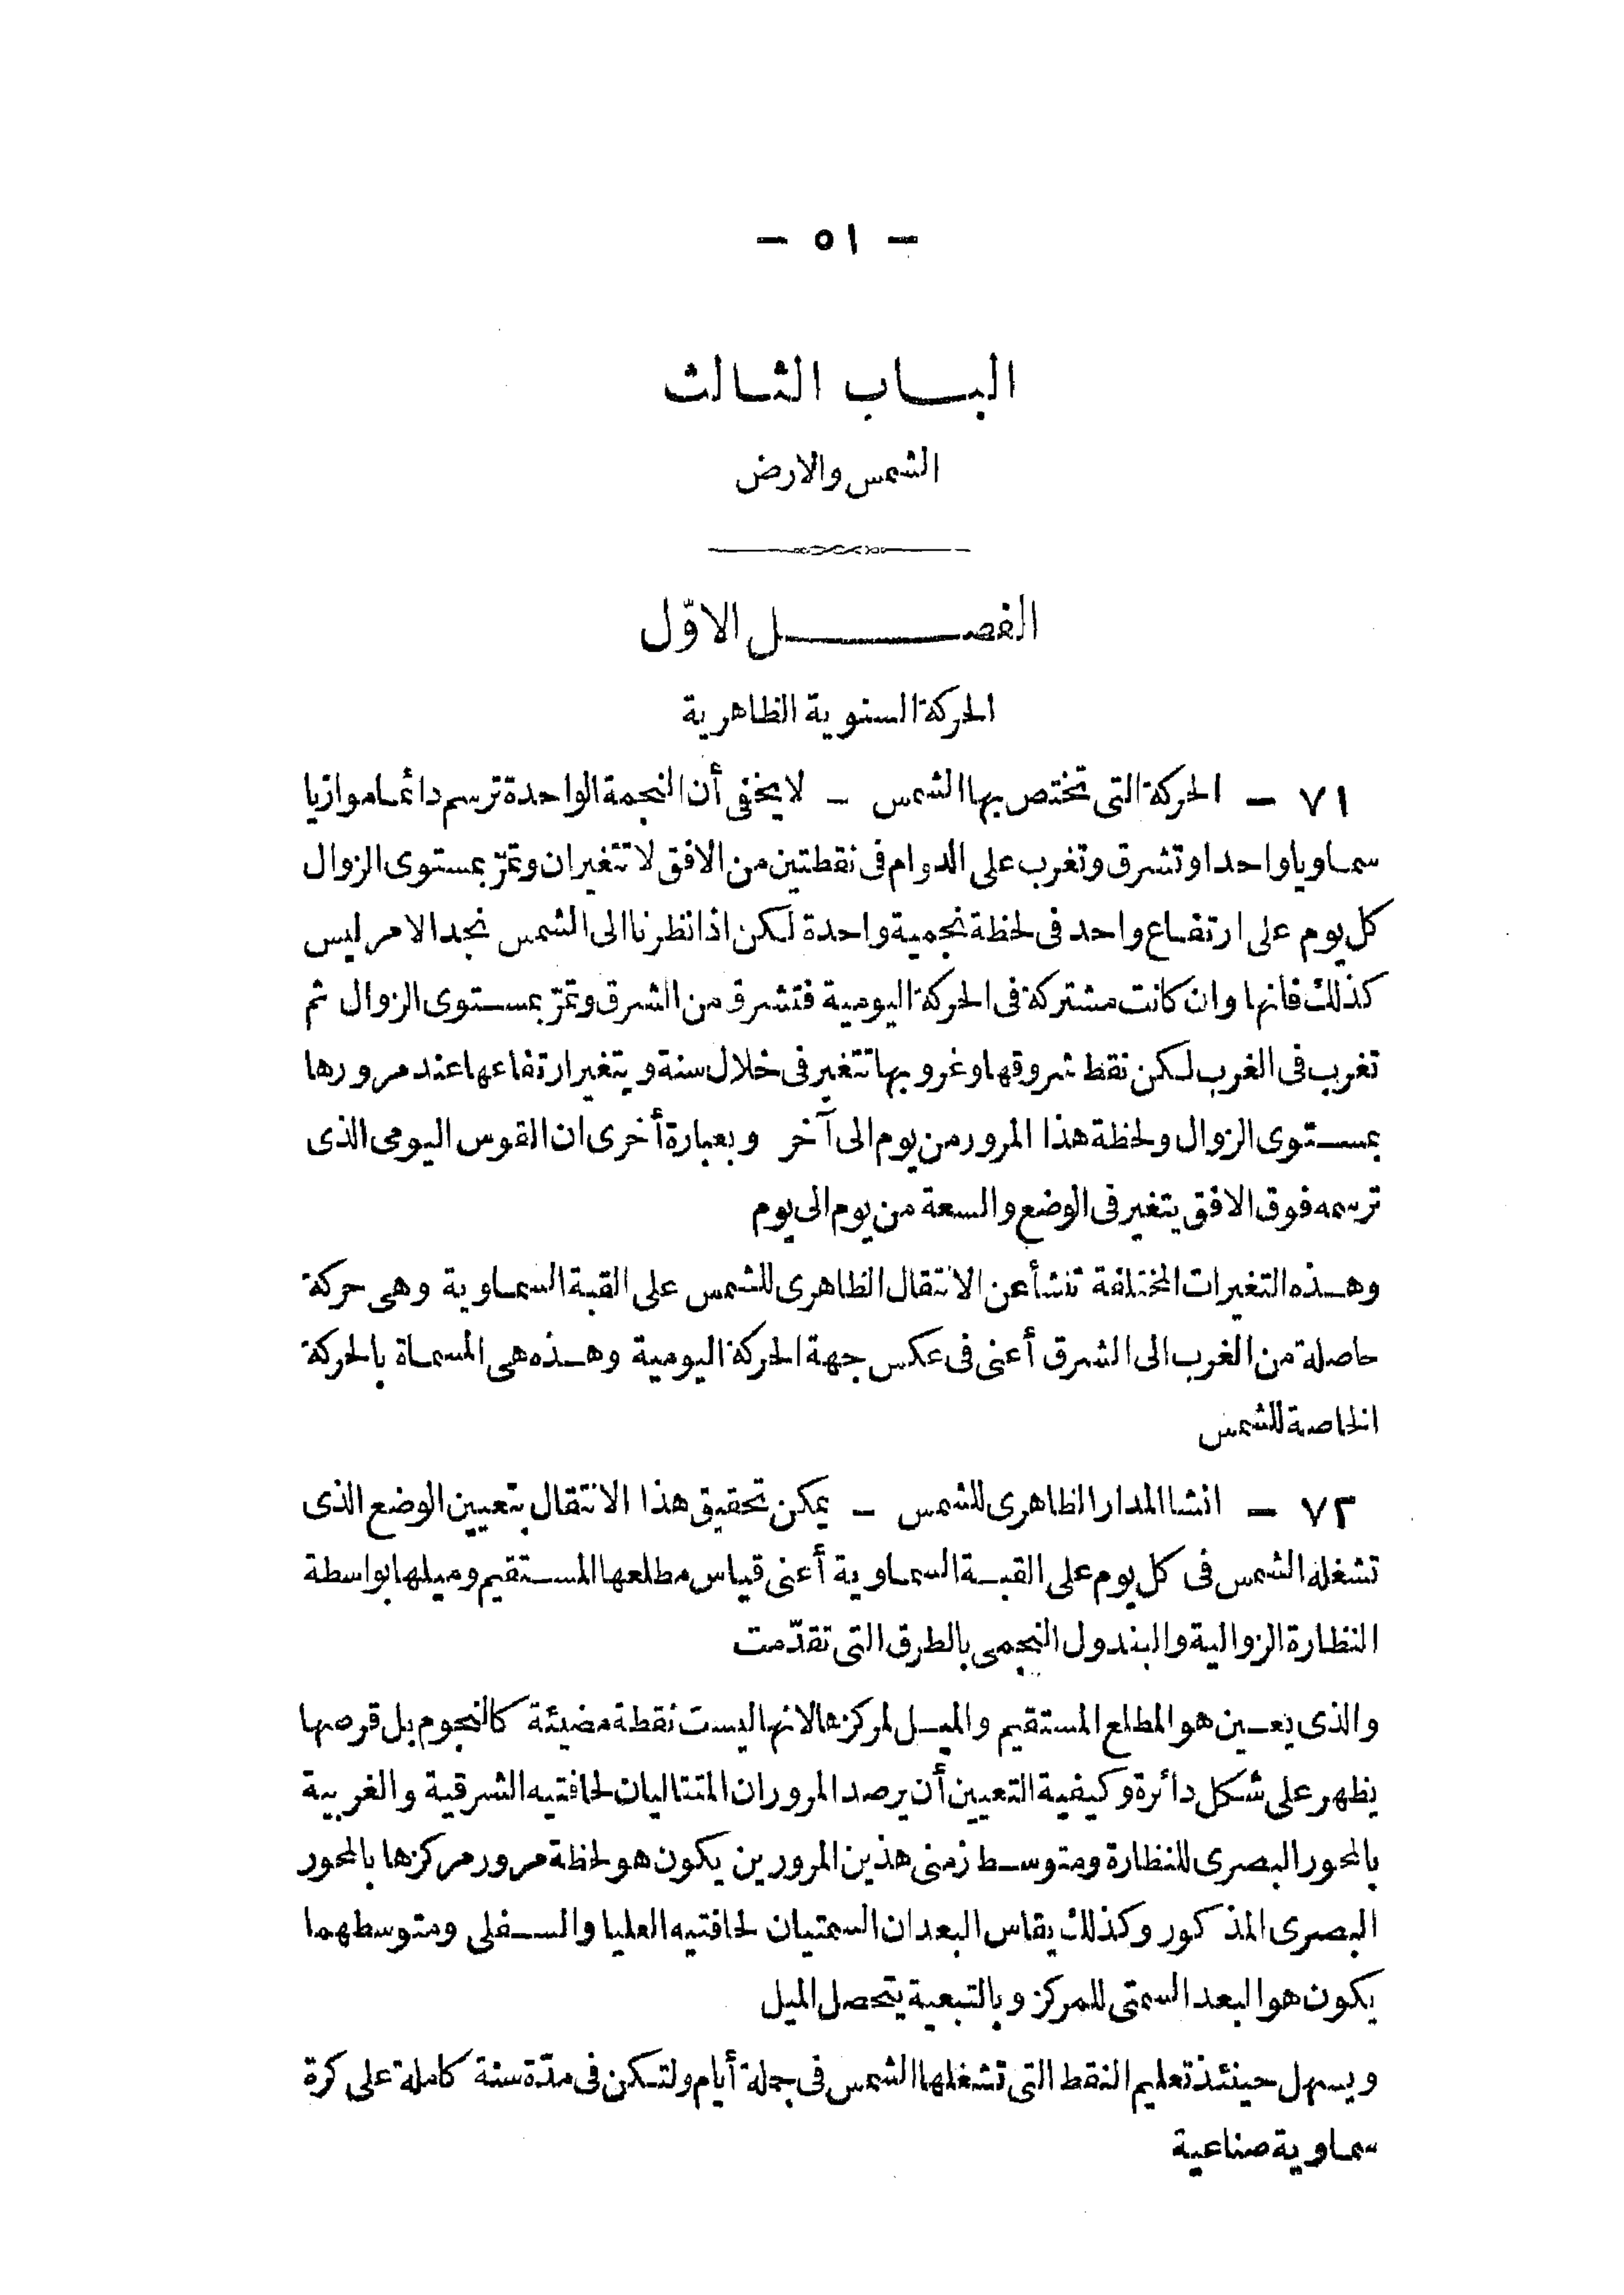 — ٥١ —
الباب الثالث
الشمس والارض
الفصل الاوّل
الحركة السنوية الظاهرية
٧١ — الحركة التى تختص بها الشمس — لا يخفى أن النجمة الواحدة ترسم دائما موازيا
سماويا واحدا وتشرق وتغرب على الدوام فى نقطتين من الافق لا تتغيران وتمرّ بمستوى الزوال
كل يوم على ارتفاع واحد فى لحظة نجمية واحدة لكن اذا نظرنا الى الشمس نجد الامر ليس
كذلك فانها وان كانت مشتركة فى الحركة اليومية فتشرق من الشرق وتمرّ بمستوى الزوال ثم
تغرب فى الغرب لكن نقط شروقها وغروبها تتغير فى خلال سنة ويتغير ارتفاعها عند مرورها
بمستوى الزوال ولحظة هذا المرور من يوم الى آخر وبعبارة أخرى ان القوس اليومى الذى
ترسمه فوق الافق يتغير فى الوضع والسعة من يوم الى يوم
وهذه التغيرات المختلفة تنشأ عن الانتقال الظاهرى للشمس على القبة السماوية وهى حركة
حاصلة من الغرب الى الشرق أعنى فى عكس جهة الحركة اليومية وهذه هى المسماة بالحركة
الخاصة للشمس
٧٢ — انشا المدار الظاهرى للشمس — يمكن تحقيق هذا الانتقال بتعيين الوضع الذى
تشغله الشمس فى كل يوم على القبة السماوية أعنى قياس مطلعها المستقيم وميلها بواسطة
النظارة الزوالية والبندول النجمى بالطرق التى تقدّمت
والذى يعين هو المطلع المستقيم والميل لمركزها لانها ليست نقطة مضيئة كالنجوم بل قرصها
يظهر على شكل دائرة وكيفية التعيين أن يرصد المروران المتتاليان لحافتيه الشرقية والغربية
بالمحور البصرى للنظارة ومتوسط زمنى هذين المرورين يكون هو لحظة مرور مركزها بالمحور
البصرى المذكور وكذلك يقاس البعدان السمتيان لحافتيه العليا والسفلى ومتوسطهما
يكون هو البعد السمتى للمركز وبالتبعية يتحصل الميل
ويسهل حينئذ تعليم النقط التى تشغلها الشمس فى جملة أيام ولتكن فى مدّة سنة كاملة على كرة
سماوية صناعية